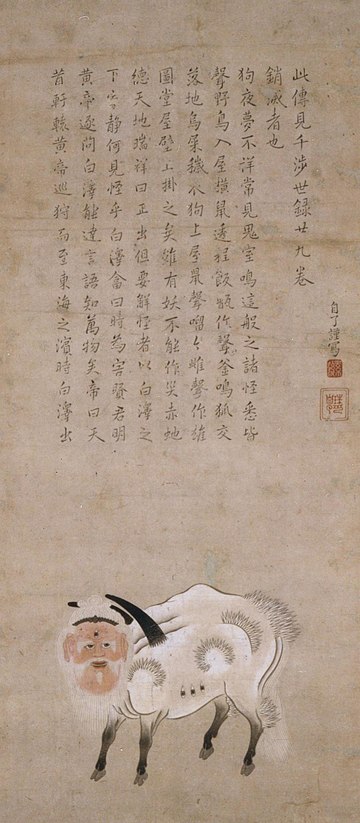 昔軒轅黄帝巡狩而至東海之濱時白澤出
黄帝逐問白澤能達言語知萬物矣帝曰天
下静何見怪乎白澤畣曰時為害賢君明
總天地瑞祥曰正出但要解怪者以白澤之
圖堂屋壁上掛之矣雖有妖不能作災赤虵
落地烏屎穢衣狗上屋鼠聲々雌聲作雄
聲野鳥入屋横鼠遶程飯甑作聲釜鳴狐交
狗夜夢不洋常見鬼室鳴這般之諸怪悉皆
銷滅者也
此傳見千渉世録廿九卷
自了謹寫